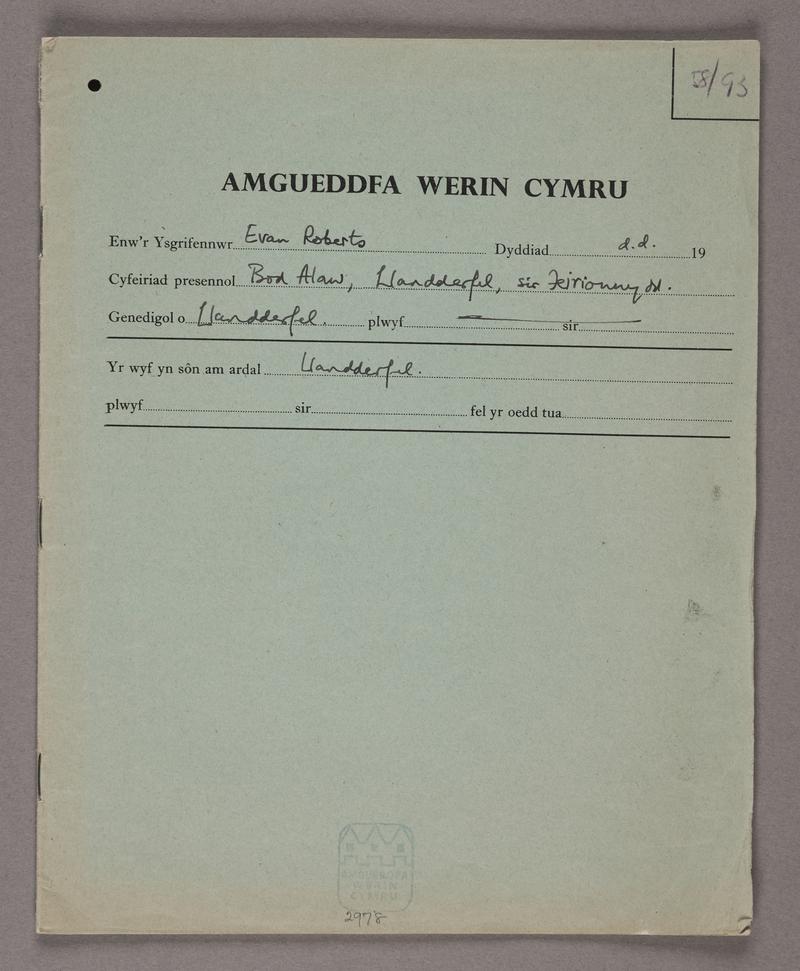 58/93
AMGUEDDFA WERIN CYMRU
Enw'r Ysgrifennwr Evan Roberts Dyddiad d.d. 19
Cyfeiriad presennol Bod Alaw, Llandderfel, sir Feirionnydd.
Genedigol o Llandderfel. plwyf sir
Yr wyf yn sôn am ardal Llandderfel.
plwyf sir fel yr oedd tua
AMGUEDDFA
WERIN
CYMRU
2978